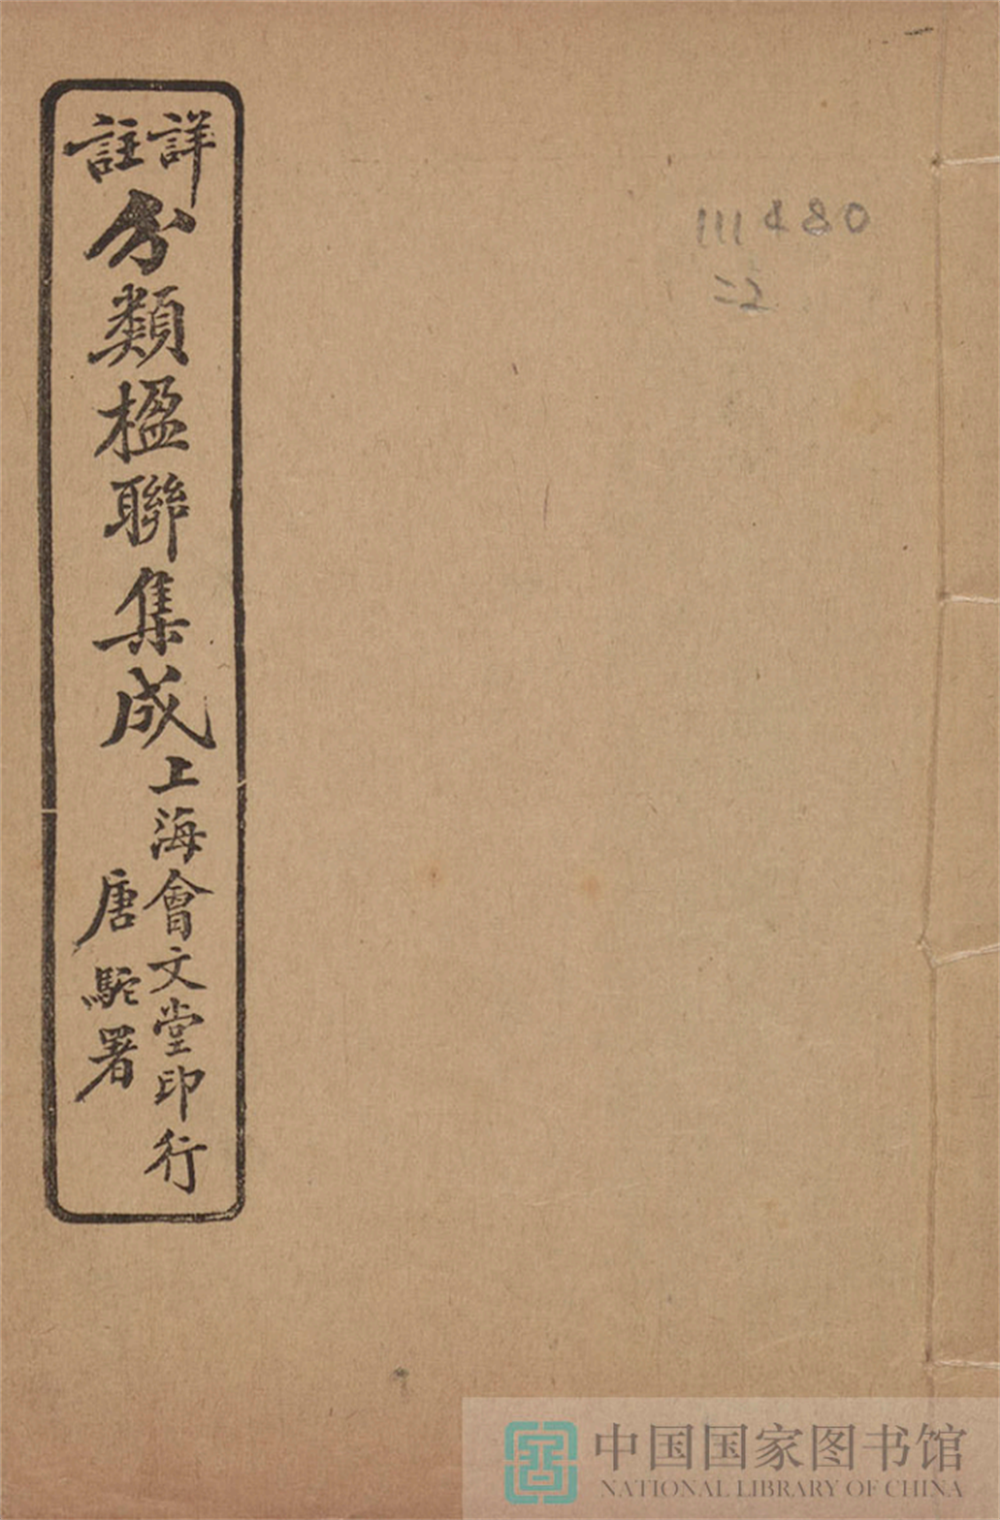 詳註
分類楹聯集成
上海會文堂印行
唐駝署
111480
=2
中国国家图书馆
NATIONAL LIBRARY OF CHINA